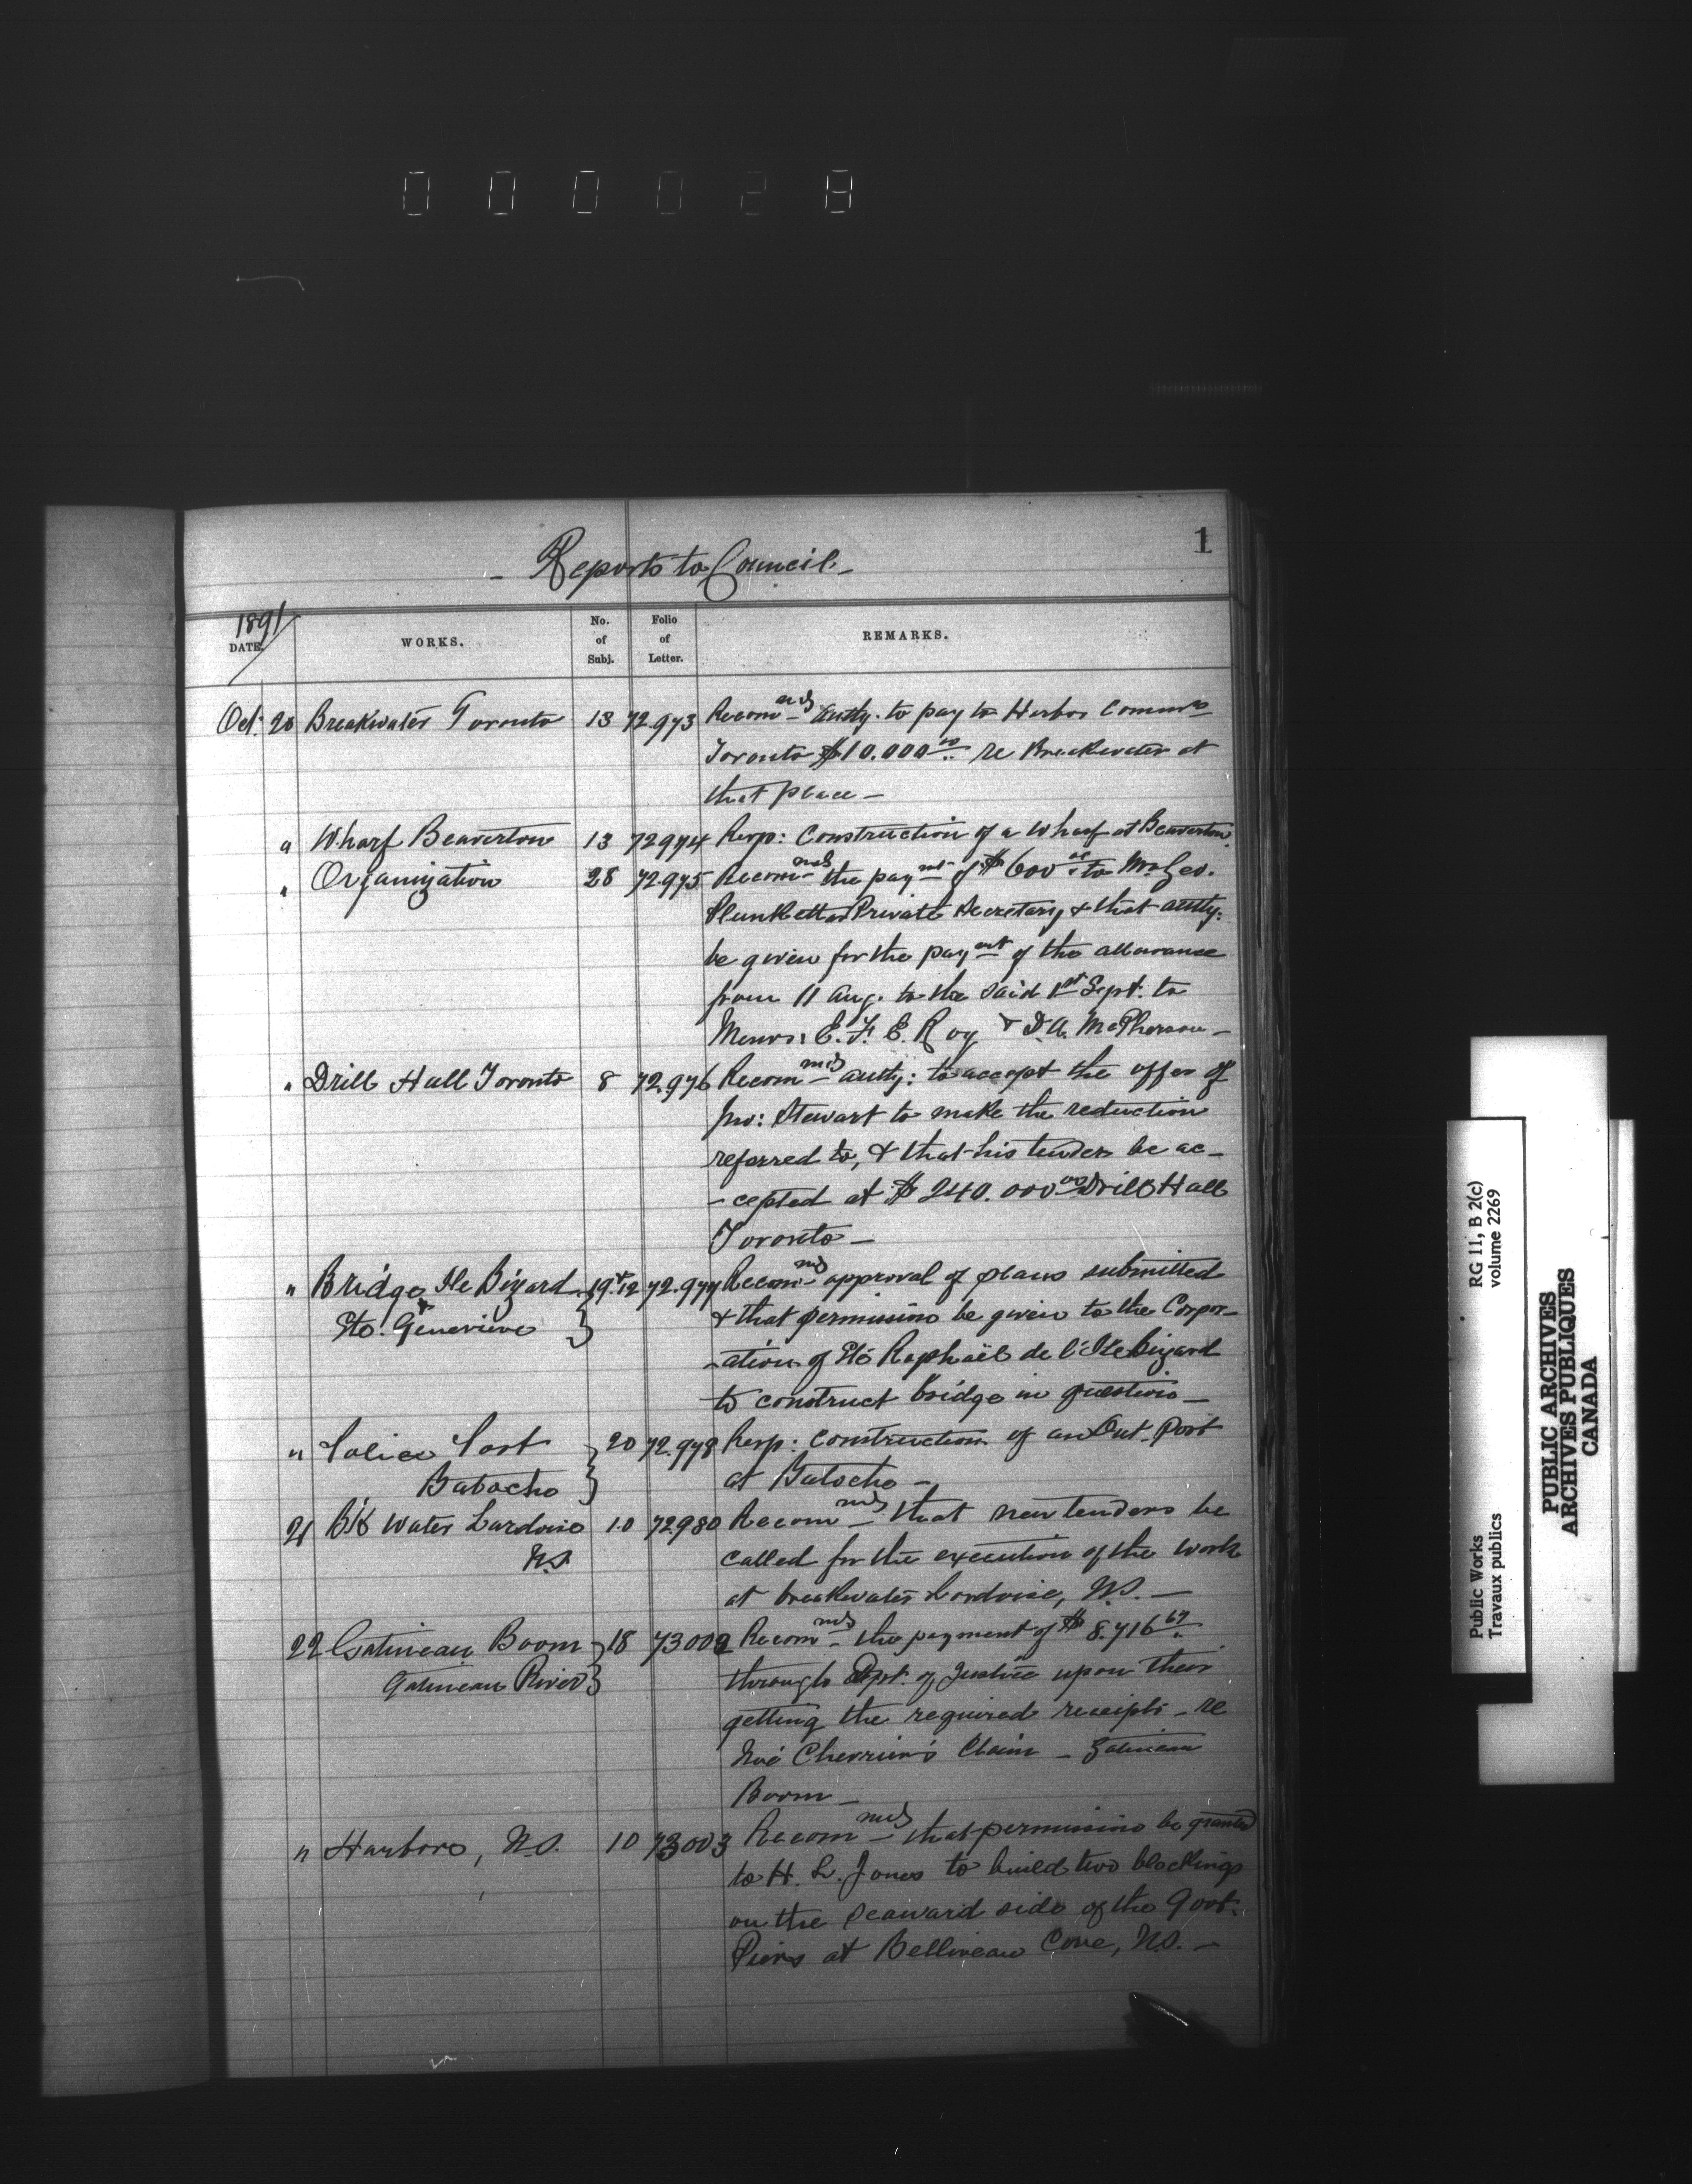 000028
1
- Reports to Council -
1891
DATE. WORKS. No. of Subj. Folio of Letter. REMARKS.
Oct. 20 Breakwater Toronto 13 72.973 Recommds authy. to pay to Harbor Commrs
Toronto $10.000 00 re Breakwater at
that place -
" Wharf Beaverton 13 72974 Resp: Construction of a wharf at Beaverton.
" Organization 28 72.975 Recommds the paymt of $600 00 to Mr Geo.
Plunkett as Private Secretary & that authy:
be given for the paymt of the allowance
from 11 Aug. to the said 1st Sept. to
Messrs: E. F. E. Roy & D. A. McPherson -
" Drill Hall Toronto 8 72.976 Recommds authy: to accept the offer of
Jno: Stewart to make the reduction
referred to, & that his tender be ac-
- cepted at $240.000 00 Drill Hall
Toronto -
" Bridge Ile Bizard 19 & 12 72.977 Recommds approval of plans submitted
& Ste. Genevieve } & that permission be given to the Corpor-
- ation of Ste Raphaël de l'Ile Bizard
to construct bridge in question -
" Police Post } 20 72.978 Resp: Construction of an Out-Post
Batoche } at Batoche -
21 B'k Water Lardoise 10 72980 Recommds that new tenders be
N.S. called for the execution of the work
at breakwater Lardoise, N.S. -
22 Gatineau Boom } 18 73002 Recommds the payment of $8.716 67
Gatineau River } through Dept. of Justice upon their
getting the required receipts - re
Noé Chevrier's Claim - Gatineau
Boom -
" Harbors, N.S. 10 73003 Recommds that permission be granted
to H. L. Jones to build two blockings
on the seaward side of the Govt.
Piers at Belliveau Cove, N.S. -
Public Works RG 11, B 2(c)
Travaux publics volume 2269
PUBLIC ARCHIVES
ARCHIVES PUBLIQUES
CANADA